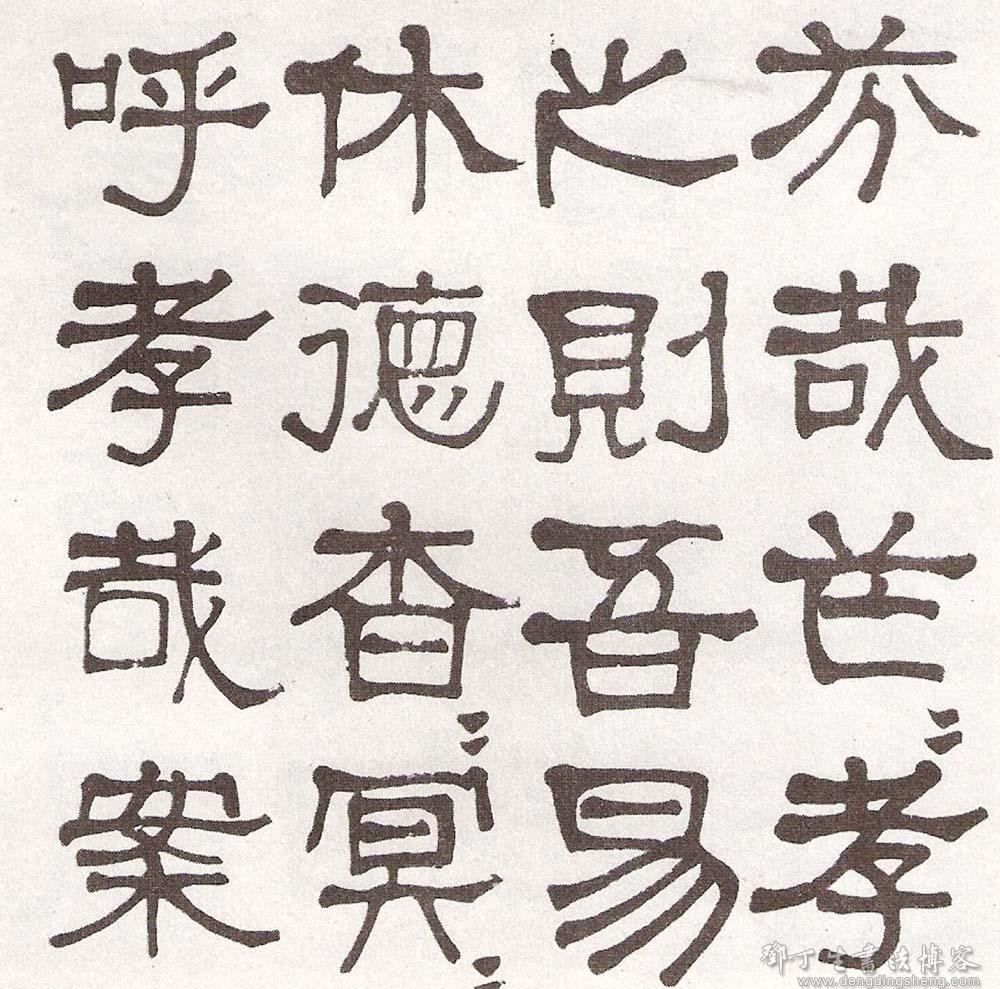 芬哉芒〻孝
之則吾易
休德杳〻冥〻
呼孝哉案
鄧丁生書法博客
www.dengdingsheng.com